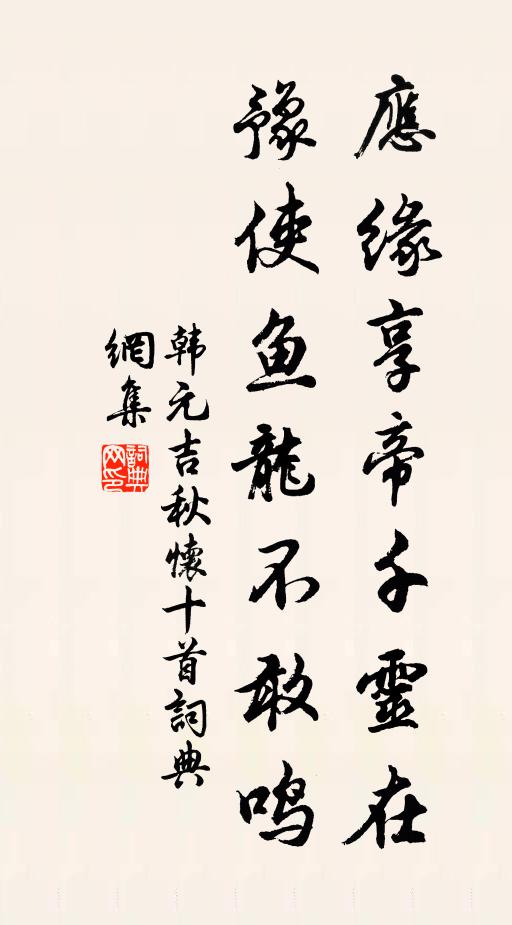 應緣享帝千靈在
豫使鱼龍不敢鳴
韩元吉秋懷十首詞典
網集
詞典
网印